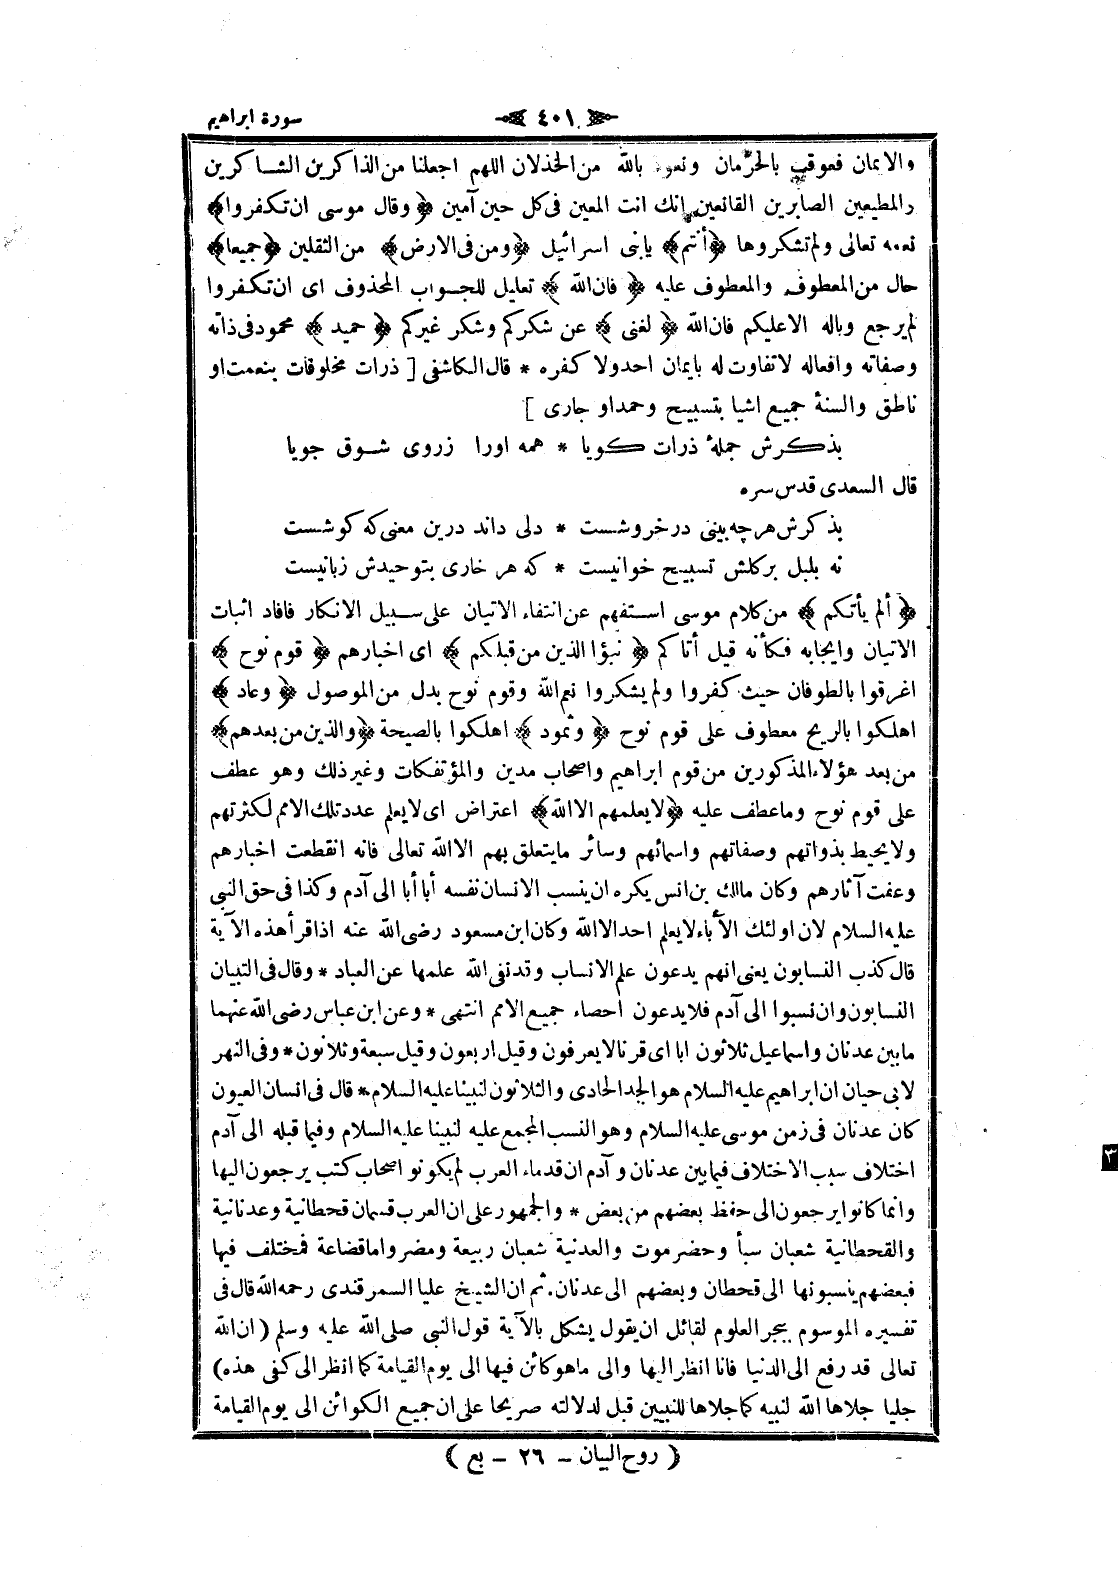 سورة ابراهيم
٤٠١
والايمان فعوقب بالحرمان ونعوذ بالله من الخذلان اللهم اجعلنا من الذاكرين الشاكرين
والمطيعين الصابرين القانعين انك انت المعين فى كل حين آمين ﴿ وقال موسى ان تكفروا ﴾
نعمه تعالى ولم تشكروها ﴿ أنتم ﴾ يابنى اسرائيل ﴿ ومن فى الارض ﴾ من الثقلين ﴿ جميعا ﴾
حال من المعطوف والمعطوف عليه ﴿ فان الله ﴾ تعليل للجواب المحذوف اى ان تكفروا
لم يرجع وباله الا عليكم فان الله ﴿ لغنى ﴾ عن شكركم وشكر غيركم ﴿ حميد ﴾ محمود فى ذاته
وصفاته وافعاله لا تفاوت له بايمان احد ولا كفره * قال الكاشفى [ ذرات مخلوقات بنعمت او
ناطق والسنهٔ جميع اشيا بتسبيح وحمد او جارى ]
بذكرش جملهٔ ذرات كويا * همه اورا زروى شوق جويا
قال السعدى قدس سره
بذكرش هرچه بينى در خروشست * دلى داند درين معنى كه كوشست
نه بلبل بر كلش تسبيح خوانيست * كه هر خارى بتوحيدش زبانيست
﴿ ألم يأتكم ﴾ من كلام موسى استفهم عن انتفاء الاتيان على سبيل الانكار فافاد اثبات
الاتيان وايجابه فكأنه قيل أتاكم ﴿ نبؤا الذين من قبلكم ﴾ اى اخبارهم ﴿ قوم نوح ﴾
اغرقوا بالطوفان حيث كفروا ولم يشكروا نعم الله وقوم نوح بدل من الموصول ﴿ وعاد ﴾
اهلكوا بالريح معطوف على قوم نوح ﴿ وثمود ﴾ اهلكوا بالصيحة ﴿ والذين من بعدهم ﴾
من بعد هؤلاء المذكورين من قوم ابراهيم واصحاب مدين والمؤتفكات وغير ذلك وهو عطف
على قوم نوح وما عطف عليه ﴿ لا يعلمهم الا الله ﴾ اعتراض اى لا يعلم عدد تلك الامم لكثرتهم
ولا يحيط بذواتهم وصفاتهم واسمائهم وسائر ما يتعلق بهم الا الله تعالى فانه انقطعت اخبارهم
وعفت آثارهم وكان مالك بن انس يكره ان ينسب الانسان نفسه أبا أبا الى آدم وكذا فى حق النبى
عليه السلام لان اولئك الآباء لا يعلم احد الا الله وكان ابن مسعود رضى الله عنه اذا قرأ هذه الآية
قال كذب النسابون يعنى انهم يدعون علم الانساب وقد نفى الله علمها عن العباد * وقال فى التبيان
النسابون وان نسبوا الى آدم فلا يدعون احصاء جميع الامم انتهى * وعن ابن عباس رضى الله عنهما
ما بين عدنان واسماعيل ثلاثون ابا اى قرنا لا يعرفون وقيل اربعون وقيل سبعة وثلاثون * وفى النهر
لابى حيان ان ابراهيم عليه السلام هو الجد الحادى والثلاثون لنبينا عليه السلام * قال فى انسان العيون
كان عدنان فى زمن موسى عليه السلام وهو النسب المجمع عليه لنبينا عليه السلام وفيما قبله الى آدم
اختلاف سبب الاختلاف فيما بين عدنان وآدم ان قدماء العرب لم يكونو اصحاب كتب يرجعون اليها
وانما كانوا يرجعون الى حفظ بعضهم من بعض * والجمهور على ان العرب قسمان قحطانية وعدنانية
والقحطانية شعبان سبأ وحضرموت والعدنية شعبان ربيعة ومضر واما قضاعة فمختلف فيها
فبعضهم ينسبونها الى قحطان وبعضهم الى عدنان . ثم ان الشيخ عليا السمرقندى رحمه الله قال فى
تفسيره الموسوم ببحر العلوم لقائل ان يقول يشكل بالآية قول النبى صلى الله عليه وسلم ( ان الله
تعالى قد رفع الى الدنيا فانا انظر اليها والى ما هو كائن فيها الى يوم القيامة كما انظر الى كفى هذه )
جليا جلاها الله لنبيه كما جلاها للنبيين قبل لدلالته صريحا على ان جميع الكوائن الى يوم القيامة
( روح البيان – ٢٦ – بع )
٣